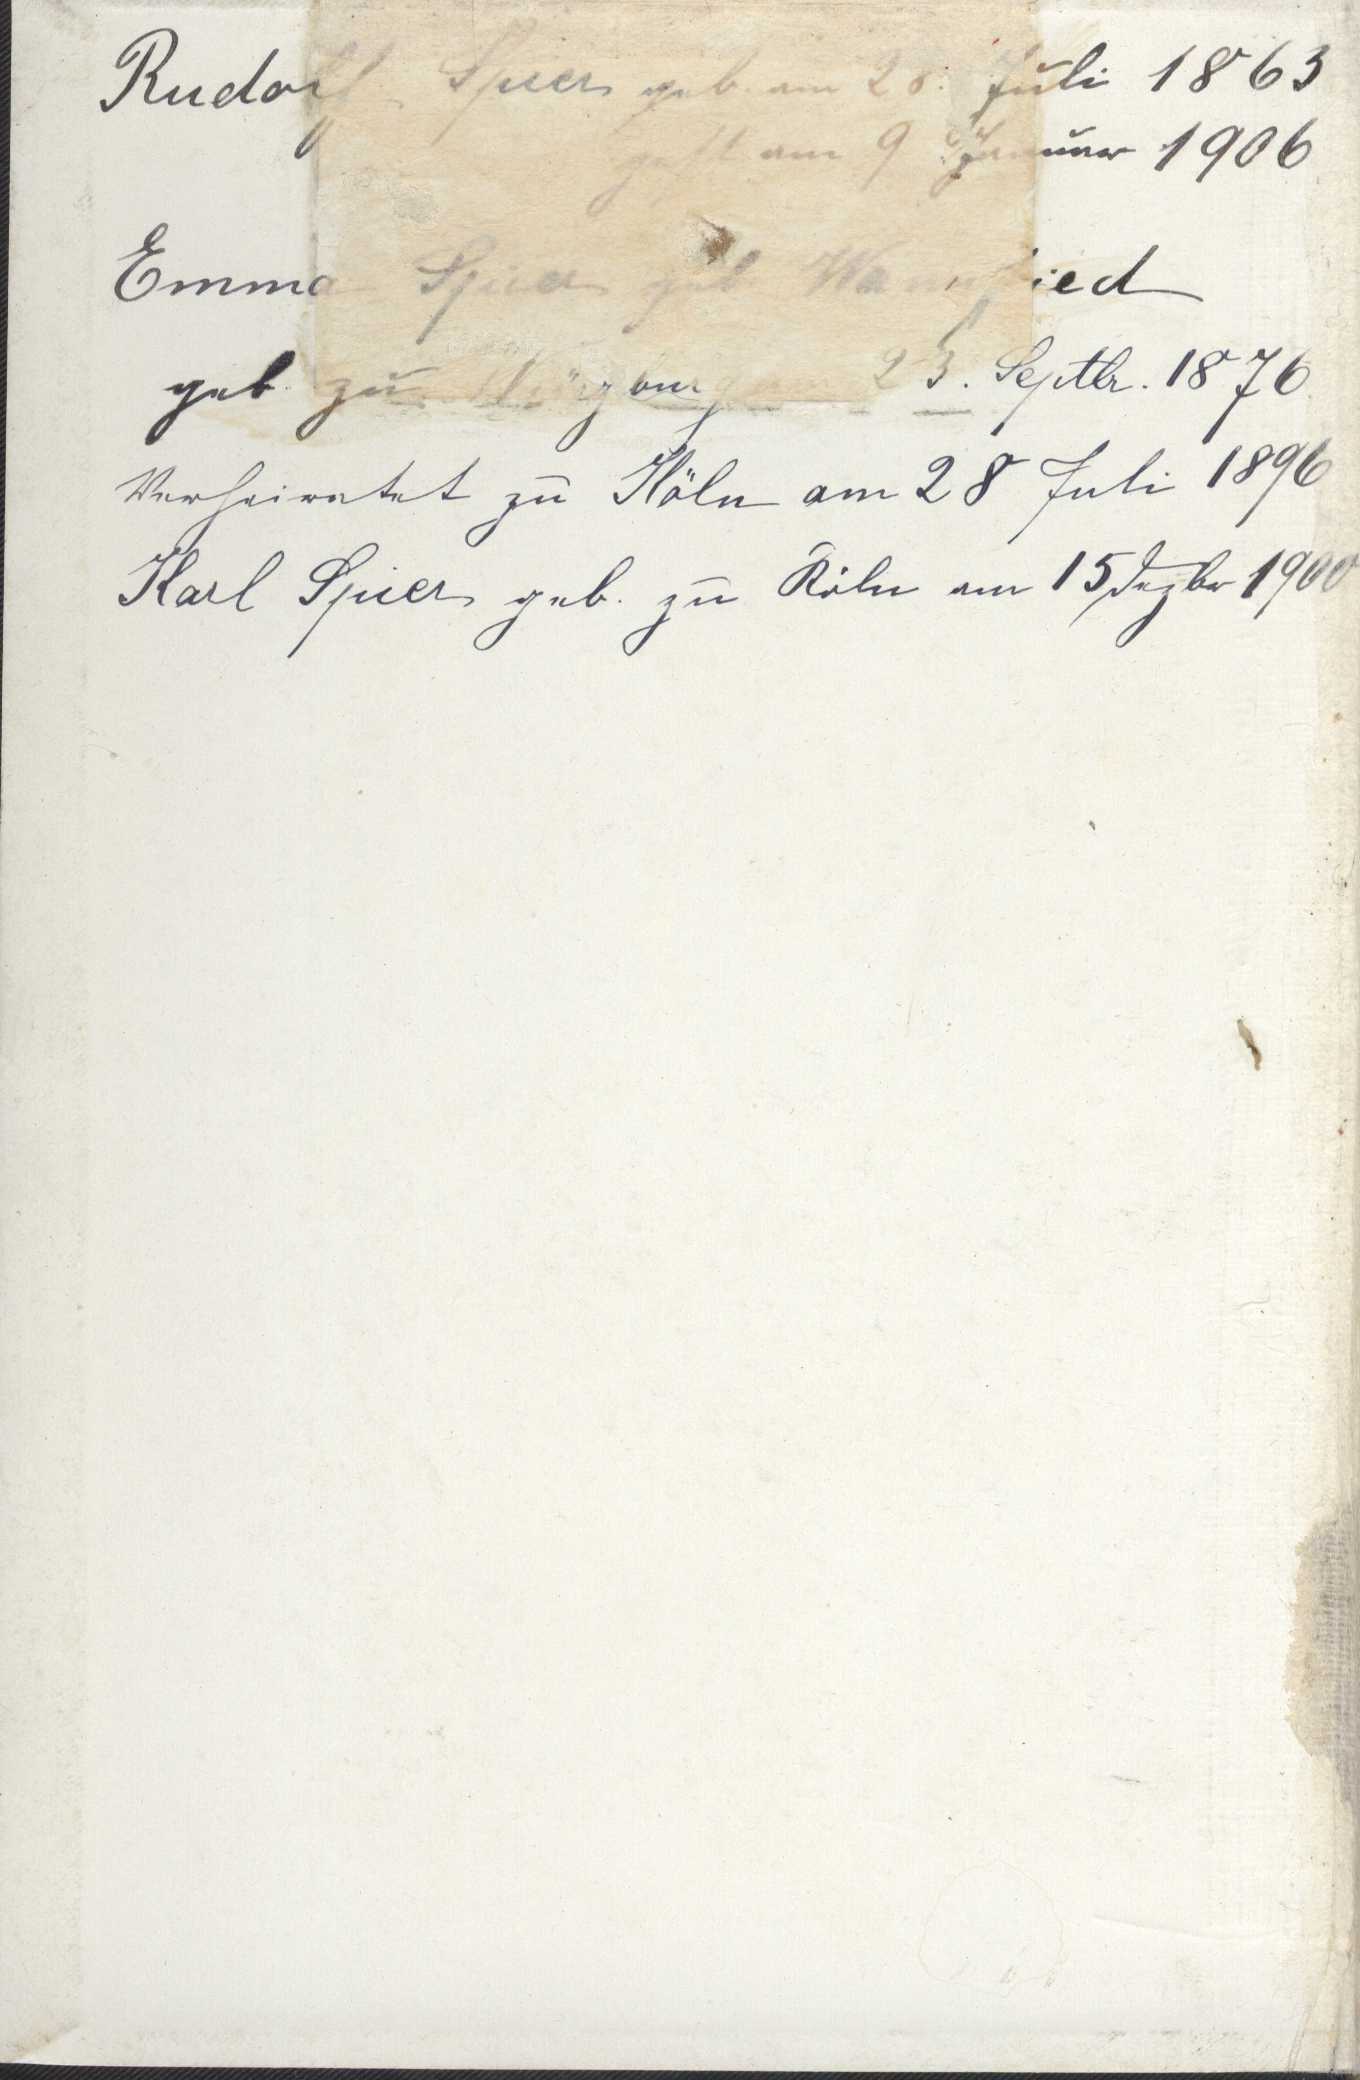 Rudolf Spier geb. am 28. Juli 1863
gest. am 9 Januar 1906
Emma Spier geb. Wannfried
geb. zu am 23. Septbr. 1876
Verheiratet zu Köln am 28 Juli 1896
Karl Spier geb. zu Köln am 15 Dezbr 1900